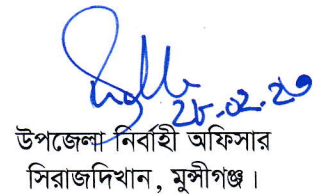 ২৮.০২.২৩
উপজেলা নির্বাহী অফিসার
সিরাজদিখান, মুন্সীগঞ্জ।